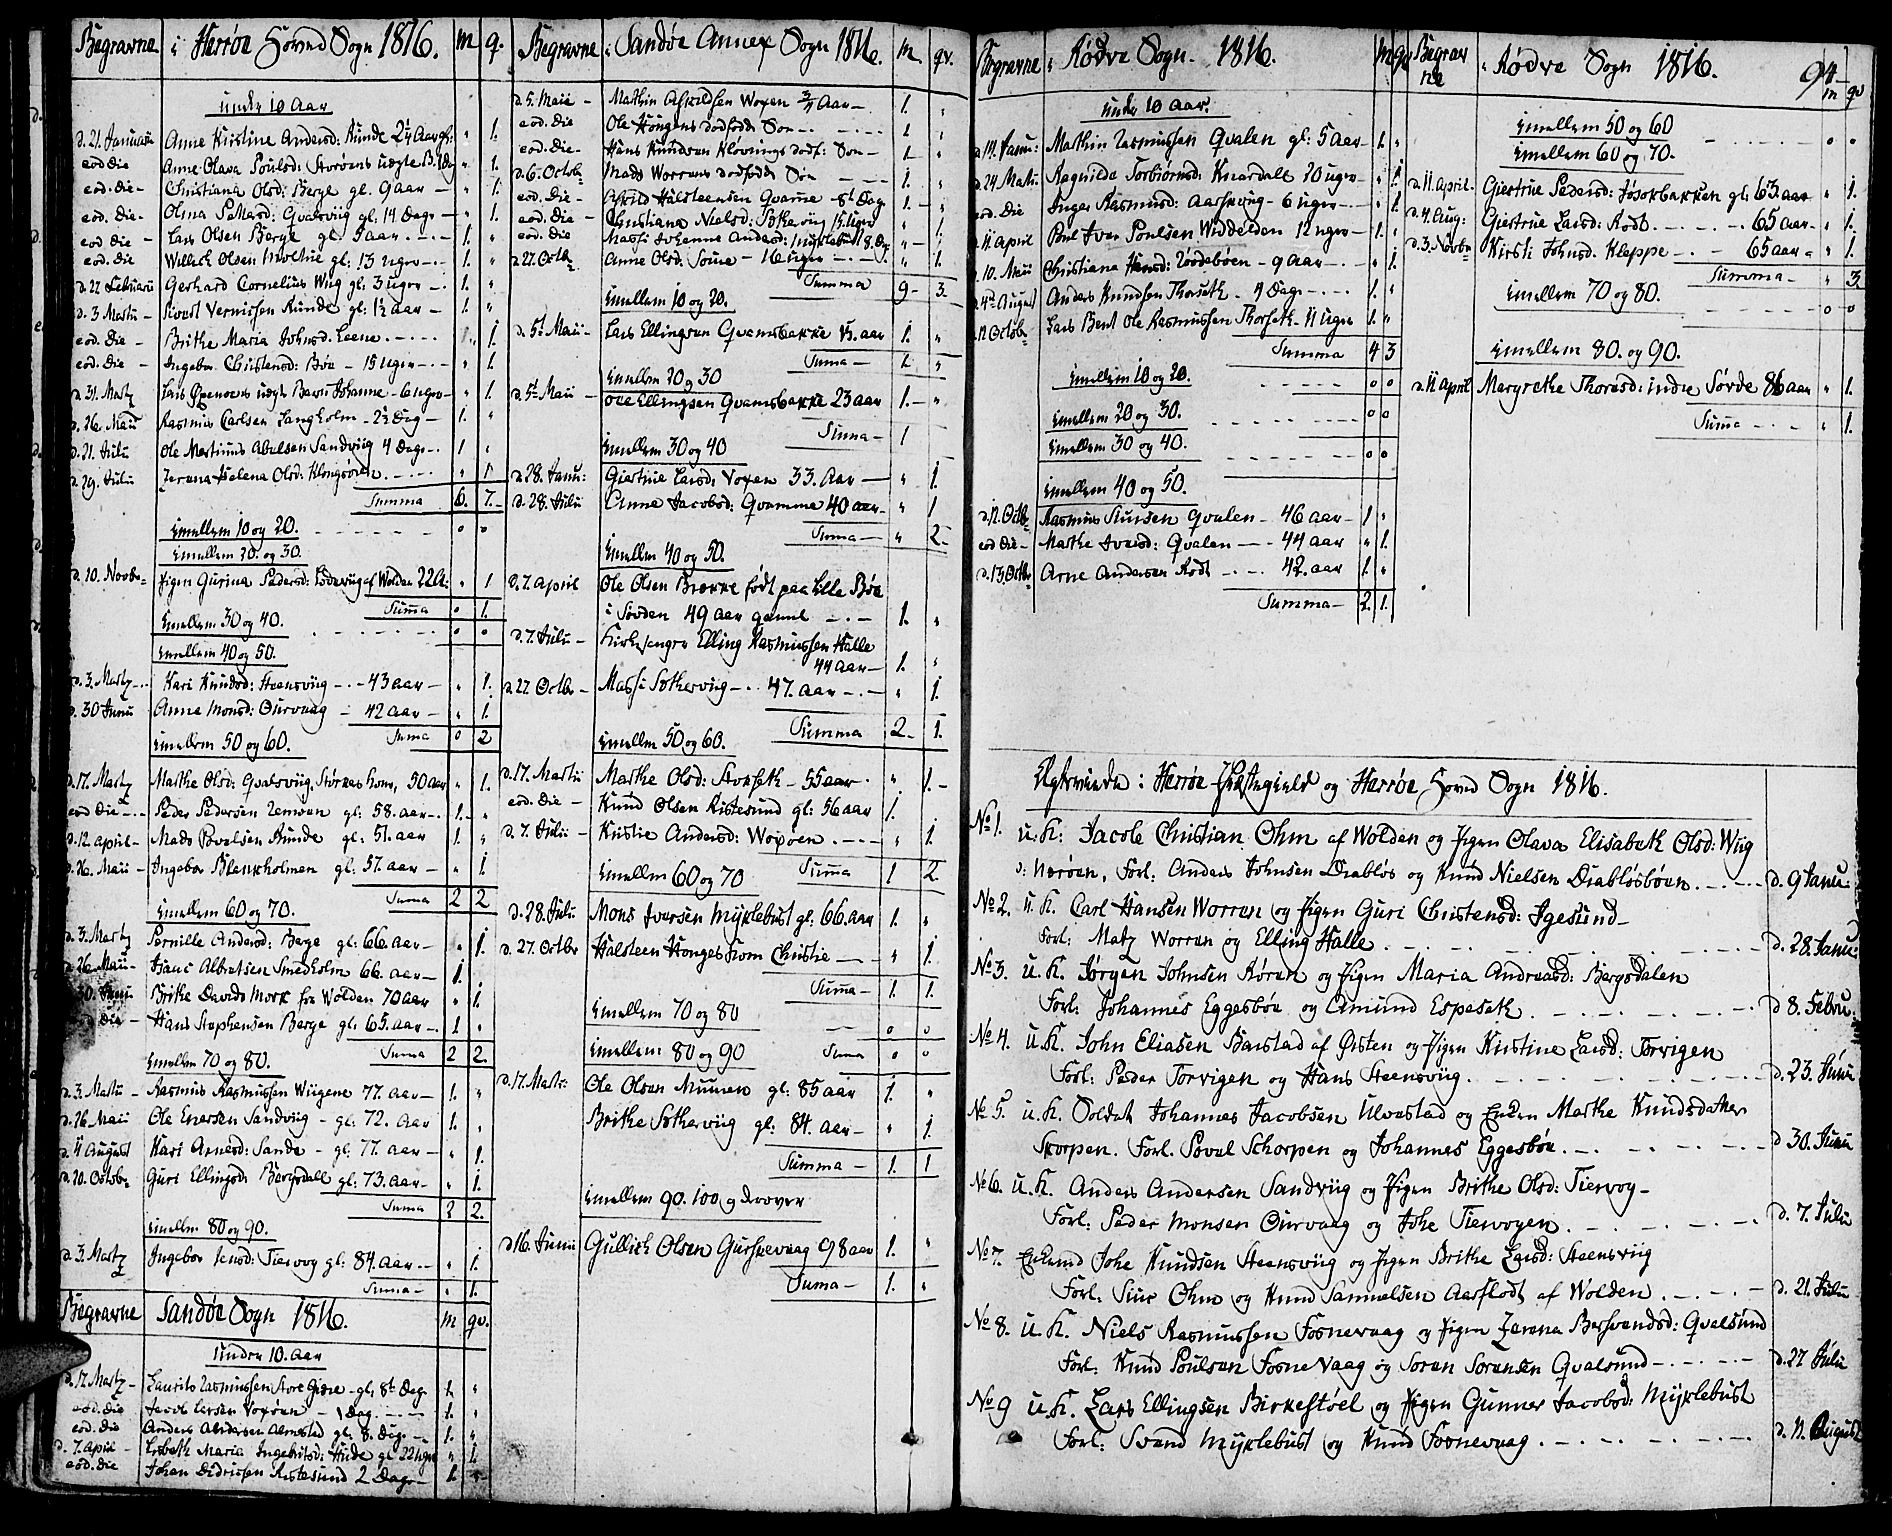 Begravne i Herrøe Hoved Sogn 1816. m. q.
under 10 Aar
d. 21. Januarii Anne Kirstine Andersd: Runde 2¼ Aar gl: " 1.
eod die Anne Olava Poulsd:
eod. die - Christiana Olsd: Berge gl. 9 aar - " 1.
eod. die - Olina Pettersd: Qvalsviig gl. 14 Dage - " 1.
eod die - Lars Olsen Berge gl. 9 aar - 1. "
eod. die Willich Olsen gl: 13 uger - 1. "
d. 22 Februarii Gerhard Cornelius Wiig gl. 3 uger - 1. "
d. 3 Martii - Sivert Vernissen Runde gl: 1½ aar - 1. "
eod. die - Brithe Maria Johnsd: - " 1.
eod. die - Ingebor Christensd: Bøe - 15 uger - " 1.
d. 31. Marty Johanne - 6 uger - " 1.
d. 26. Maii Rasmus Carlsen Langholm - 2½ Dag - 1. "
d. 21. Julii Ole Martinus Abelsen Sandviig 4 Dage - 1 "
d. 29. Julii Helena Olsd: - " 1
Summa 6. 7.
imellem 10 og 20. - o o
imellem 20. og 30.
d. 10. Novbr Jigen Gurina Pedersd: af Wolden 22 A: " 1
Summa o 1.
imellem 30 og 40. - o o
imellem 40 og 50.
d. 3. Marty Kari Knudsd: Steensviig - 43 aar - " 1.
d. 30 Junii Anne Monsd: Ourvaag - 42 aar - " 1.
Suma o 2
imellem 50 og 60.
d. 17. Marty Marthe Olsd: Qvalsviig, 50 aar " 1.
eod die - Peder Pedersen gl: 58. aar - 1. "
d. 12. april - Mads Povelsen Runde gl: 51. aar 1. "
d. 26. Maii - Ingebor Blankholmen gl: 57. aar - " 1.
Suma 2 2
imellem 60 og 70.
d. 3. Marty Pernille Andersd: Berge gl: 66. aar - " 1.
d. 26. Maii - Hans Albretsen Smedholm 66. aar - 1.
30. Junii Brithe Davids Mork fra Wolden 70 aar " 1.
die - Hans Stephensen Berge gl: 65. aar - 1. "
Suma 2 2.
imellem 70 og 80.
d. 3. Martii - Rasmus Rasmussen Wiigene 77. aar - 1. "
d. 26 Maii Ole Enersen Sandviig - gl: 72. Aar 1. "
d. 11 August Kari Arnesd: Sande - gl: 77. aar - " 1.
d. 20. Octobr Guri Ellingsd: Bergsdall gl: 73. aar - " 1.
Suma 2 2.
imellem 80 og 90.
d. 3. Marty Ingebor Jensd: Tiervog gl: 84. aar - " 1.
Suma - " 1.
Begravne Sandøe Sogn 1816. m. qv.
under 10. aar
d. 17. Marty - Laurits Rasmussen Store - gl: 8t Dag 1. "
eod. die Jacob Larsen Voxøen - 1 Dag - 1. "
eod. die Anders Andersen Almestad gl: 8. Dage - 1. "
d. 7. april - Lisbeth Maria Ingebritsd: Hide gl 22 uger " 1.
eod. die Johan Didrichsen Ristesund 2 Dage - 1. "
Begravne i Sandøe Annex Sogn 1816. m. qv.
d. 5. Maii - Mathis Voxen ¾ Aar - 1. "
eod. die Ole Honges dødfødde Søn - 1 "
eod. die - Hans Knudsen Kløvnings dødf: Søn - 1 "
d. 6. Octobr Mads Worrens dødfødde Søn - 1. "
eod. die - Halsteensen Qvame - 8t Dag 1. - "
eod. die - Christiana Nielsd: Sætherviig 15 uger " 1
eod. die Massi Johanne Andersd: Myklebust 8. Dg " - 1.
d. 27. Octbr Anne Olsd: - 16 uger - " 1.
Summa 9 - 3.
imellem 10 og 20.
d. 5t Maii - Lars Ellingsen Qvamsbakke 15. aar 1. "
Suma - 1. "
imellem 20 og 30
d. 5t Maii - Ole Ellingsen Qvamsbakke 23 aar 1. - "
Suma - 1
imellem 30 og 40
d. 28. Janu: Giertrue Larsd: Voxen 33. Aar - " 1.
d. 28. Julii Anne Jacobsd: Qvamme 40 aar - " 1
Suma - " 2 -
imellem 40 og 50.
d. 7. april Ole Olsen Brække født paa lille Bøe
i Søvden 49 aar gamel - 1. "
d. 7. Julii - Kirkesanger Elling Rasmussen Halle
44 aar - 1. "
d. 27 Octbr - Massi Sætherviig - 47. aar - " 1.
Summa 2 - 1.
imellem 50 og 60.
d. 17. Martii Marthe Olsd: Storseth - 55 aar " 1. -
eod. die - Knud Olsen Ristesund gl: 56 aar 1.
d. 7. Julii - Kirstie Andersd: Woxøen - " 1.
Summa 1 2.
imellem 60 og 70
d. 28. Julii Mons Iversen Myklebust gl: 66. aar 1. "
d. 27. Octbr Halsteen Honges kone Christie - " 1.
Summa - 1. 1.
imellem 70 og 80
- o o
imellem 80 og 90 Suma o o
d. 17. Mart: Ole Olsen Muuren gl: 85 aar 1. "
Brithe Sætherviig gl: 84. aar - " 1.
Summa - 1. 1
imellem 90. 100. og derover
d 16. Junii Gullich Olsen Gurskevaag 98 aar 1. "
Suma - 1. "
Begravne i Rødve Sogn 1816. m qv
under 10 aar.
d 14. Janu: Mathis Rasmussen Qvalen gl: 5 Aar - 1. "
d. 24 Marti: Ragnilde Torbiørnsd: Knardall 20 uger - " 1.
eod. die Inger Rasmusd: Aarseviig - 6 uger - " 1.
d. 11 april Poul Iver Poulsen Widdelden 12 uger - 1. "
d. 10. Maii Christiana Hansd: - 9 aar - " 1.
d. 4de August Anders Knudsen Thorseth - 4 Dage - 1. "
Octobr Lars Bent Ole Rasmussen Thorseth - 11 uger 1. "
Summa 4 3
imellem 10 og 20. - o o
imellem 20 og 30. - o o
imellem 30 og 40. - o o
imellem 40 og 50.
Octbr Rasmus Siursen Qvalen - 46 aar - 1 "
eod die - Marthe Iversd: Qvalen - 44 aar " 1.
d. 13. Octbr Arne Andersen Rødt - 42. aar 1. "
Summa - 2. 1.
Begravne i Rødve Sogn 1816. 94 - m qv
imellem 50 og 60 - o o
imellem 60 og 70.
d. 11 april - Giertrue Pedersd: Jøsokbakken gl: 63 aar " 1.
d. 4. Aug: Giertrue Larsd: Rødt. - 65 aar - " 1.
d. 3. Novbr Kirsti Johnsd: Kleppe - 65 aar - " 1.
Summa - " 3.
imellem 70 og 80. - o o
imellem 80. og 90.
d. 11 april Margrethe Thoresd: indre Søvde 86 aar " 1.
Summa - " 1.
Egteviede i Herrøe Præstegield og Herrøe Hoved Sogn 1816.
No 1. u. K: Jacob Christian Ohm af Wolden og Pigen Olava Elisabeth Olsd: Wiig
o: Nerøen, Forl: Anders Johnsen Drabløs og Knud Nielsen Drabløsbøen - d. 9 Janu:
No 2. u. K. Carl Hansen Worren og Pigen Guri Christensd: Igesund -
Forl: Matz Worren og Elling Halle - d. 28. Janu:
No 3. u. K. Jørgen Johnsen Røren og Pigen Maria Andreasd: Bergsdalen
Forl: Johannes Eggesbøe og Amund Espeseth - d 8. Febru:
No 4. u. K. John Eliasen Barstad af Ørsten og Pigen Kirstine Larsd: Torvigen
Forl: Peder Torvigen og Hans Steensviig - d. 23. Junii
No 5. u. K. Soldat Johannes Jacobsen Ulvestad og Enken Marthe Knudsdatter
Skorpen. Forl. Povel Schorpen og Johannes Eggesbøe - d 30. Junii
No 6. u. K. Anders Andersen Sandviig og Pigen Brithe Olsd: Tiervog -
Forl: Peder Monsen Ourvaag og Johe Tiervogen - d. 7. Julii
No 7. Enkemd Johe Knudsen Steensviig og Pigen Brithe Larsd: Steensviig
Forl: Siur Ohm og Knud Samuelsen Aarflodt af Wolden - d. 21. Julii
No 8. u. K. Niels Rasmussen Fosnevaag og Pigen Zerena Bersvendsd: Qvalsund
Forl: Knud Poulsen Fosnevaag og Soren Sorensen Qvalsund - d. 27 Julii
No 9 u. K. Lars Ellingsen Birkestøel og Pigen Gunner Jacobsd: Myklebust
Forl: Svend Myklebust og Knud Fosnevaag - d. 11. August